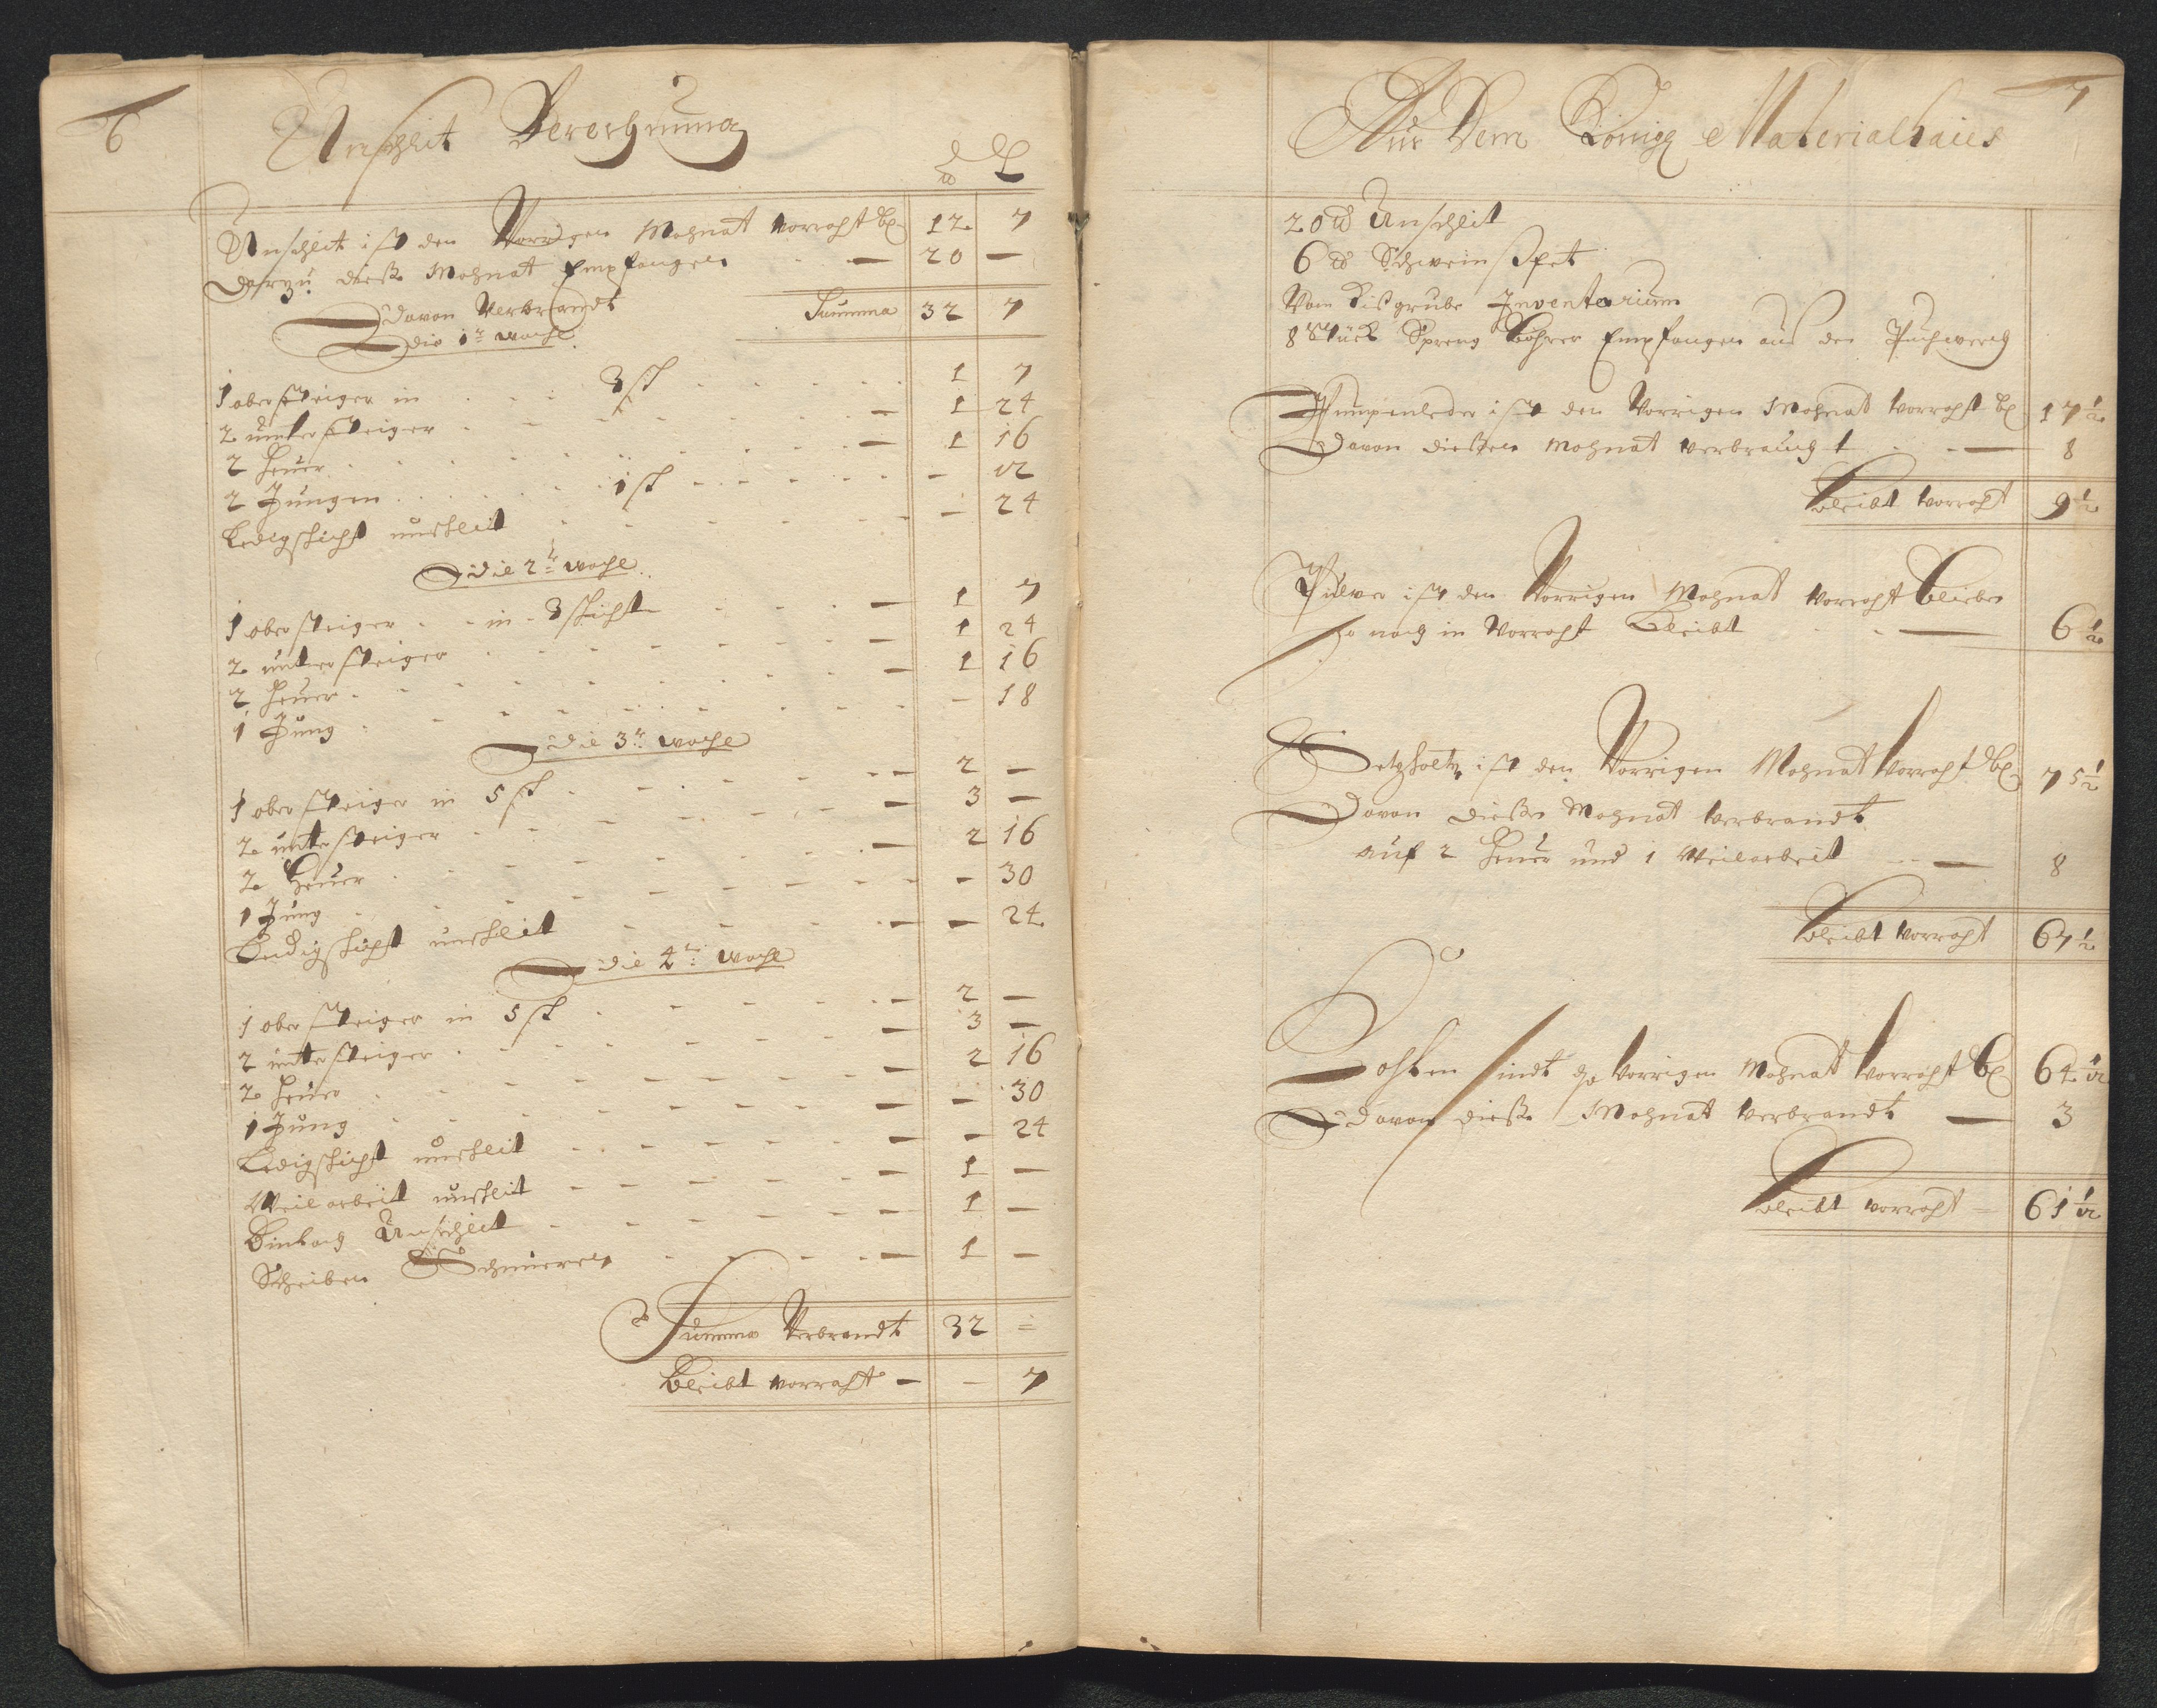 6
Unschlit Berechnung
℔ L
Unschlit ist den Vorrigen Mohnat vorraht bl 12 7
Darzu dieße Mohnat Empfangen — 20 —
Davon Verbrandt Summa 32 7
die 1te woche
1 obersteiger in 3 sch 1 7
2 untersteiger — 1 24
2 heuer — 1 16
2 Jungen 1 sch — 12
Ledigschicht unschlit — 24
die 2te woche
1 obersteiger in 3 schicht — 1 7
2 untersteiger — 1 24
2 heuer — 1 16
1 Jung — 18
die 3te woche
1 obersteiger in 5 sch — 2 —
2 untersteiger — 3 —
2 heuer — 2 16
1 Jung — 30
Ledigschicht unschlit — — 24
die 4te woche
1 obersteiger in 5 sch — 2 —
2 untersteiger — 3 —
2 heuer — 2 16
1 Jung — — 30
Ledigschicht unschlit — — 24
Weilarbeit unschlit — 1 —
Unschlit — 1 —
Scheiben Schmieren — 1 —
Summa Verbrandt 32 =
Bleibt vorraht — — 7
7
Aus Dem König Materialhaus
20 ℔ Unschlit
6 ℔ Schweinspet
Vom Inventarium
8 Stück Spreng Bohrer Empfangen aus den Puchwerch
Pumpenleder ist den Vorrigen Mohnat vorraht bl 17 1/2
Davon dießen Mohnat verbraucht — 8
bleibt vorraht 9 1/2
Pulver ist den Vorrigen Mohnat vorraht blieben
so noch in Vorraht Bleibt — 6 1/2
Setzholtz ist den Vorrigen Mohnat vorraht bl 75 1/2
Davon dieße Mohnat verbrandt
auf 2 heuer und 1 Weilarbeit — 8
bleibt vorraht 67 1/2
Bohlen sindt vorrigen Mohnat vorraht bl 64 1/2
Davon dieße Mohnat verbrandt — 3
bleibt vorraht — 61 1/2